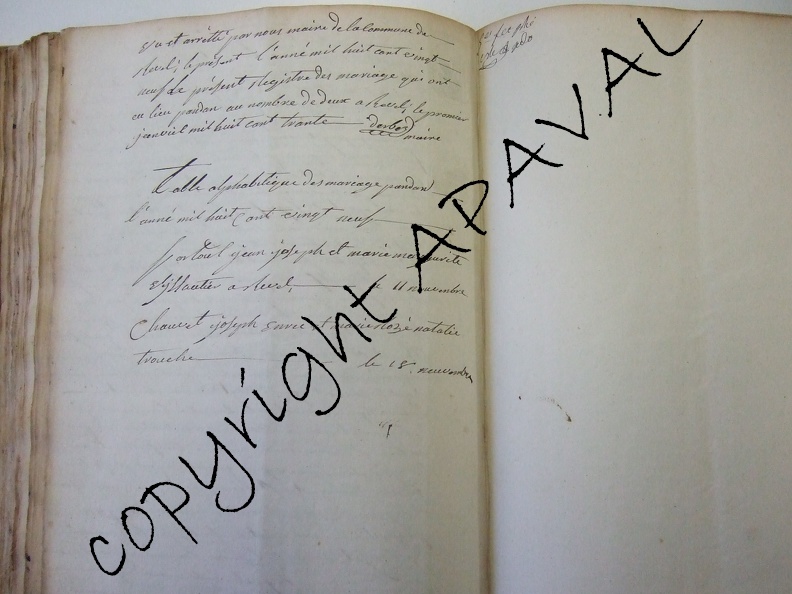 vu et arretté par nous maire de la commune de
le présent l'anné mil huit cent vingt
neuf le présent Registre des mariage qui ont
eu lieu pandan au nombre de deux a le premier
janviel mil huit cent trante maire
Table alphabétique des mariage pandan
l'anné mil huit cent vingt neuf
jean joseph et marie marguerite
a le 11 novembre
Chauvet joseph et marie rozé natalie
trouche le 18 novembre
copyright APAVAL